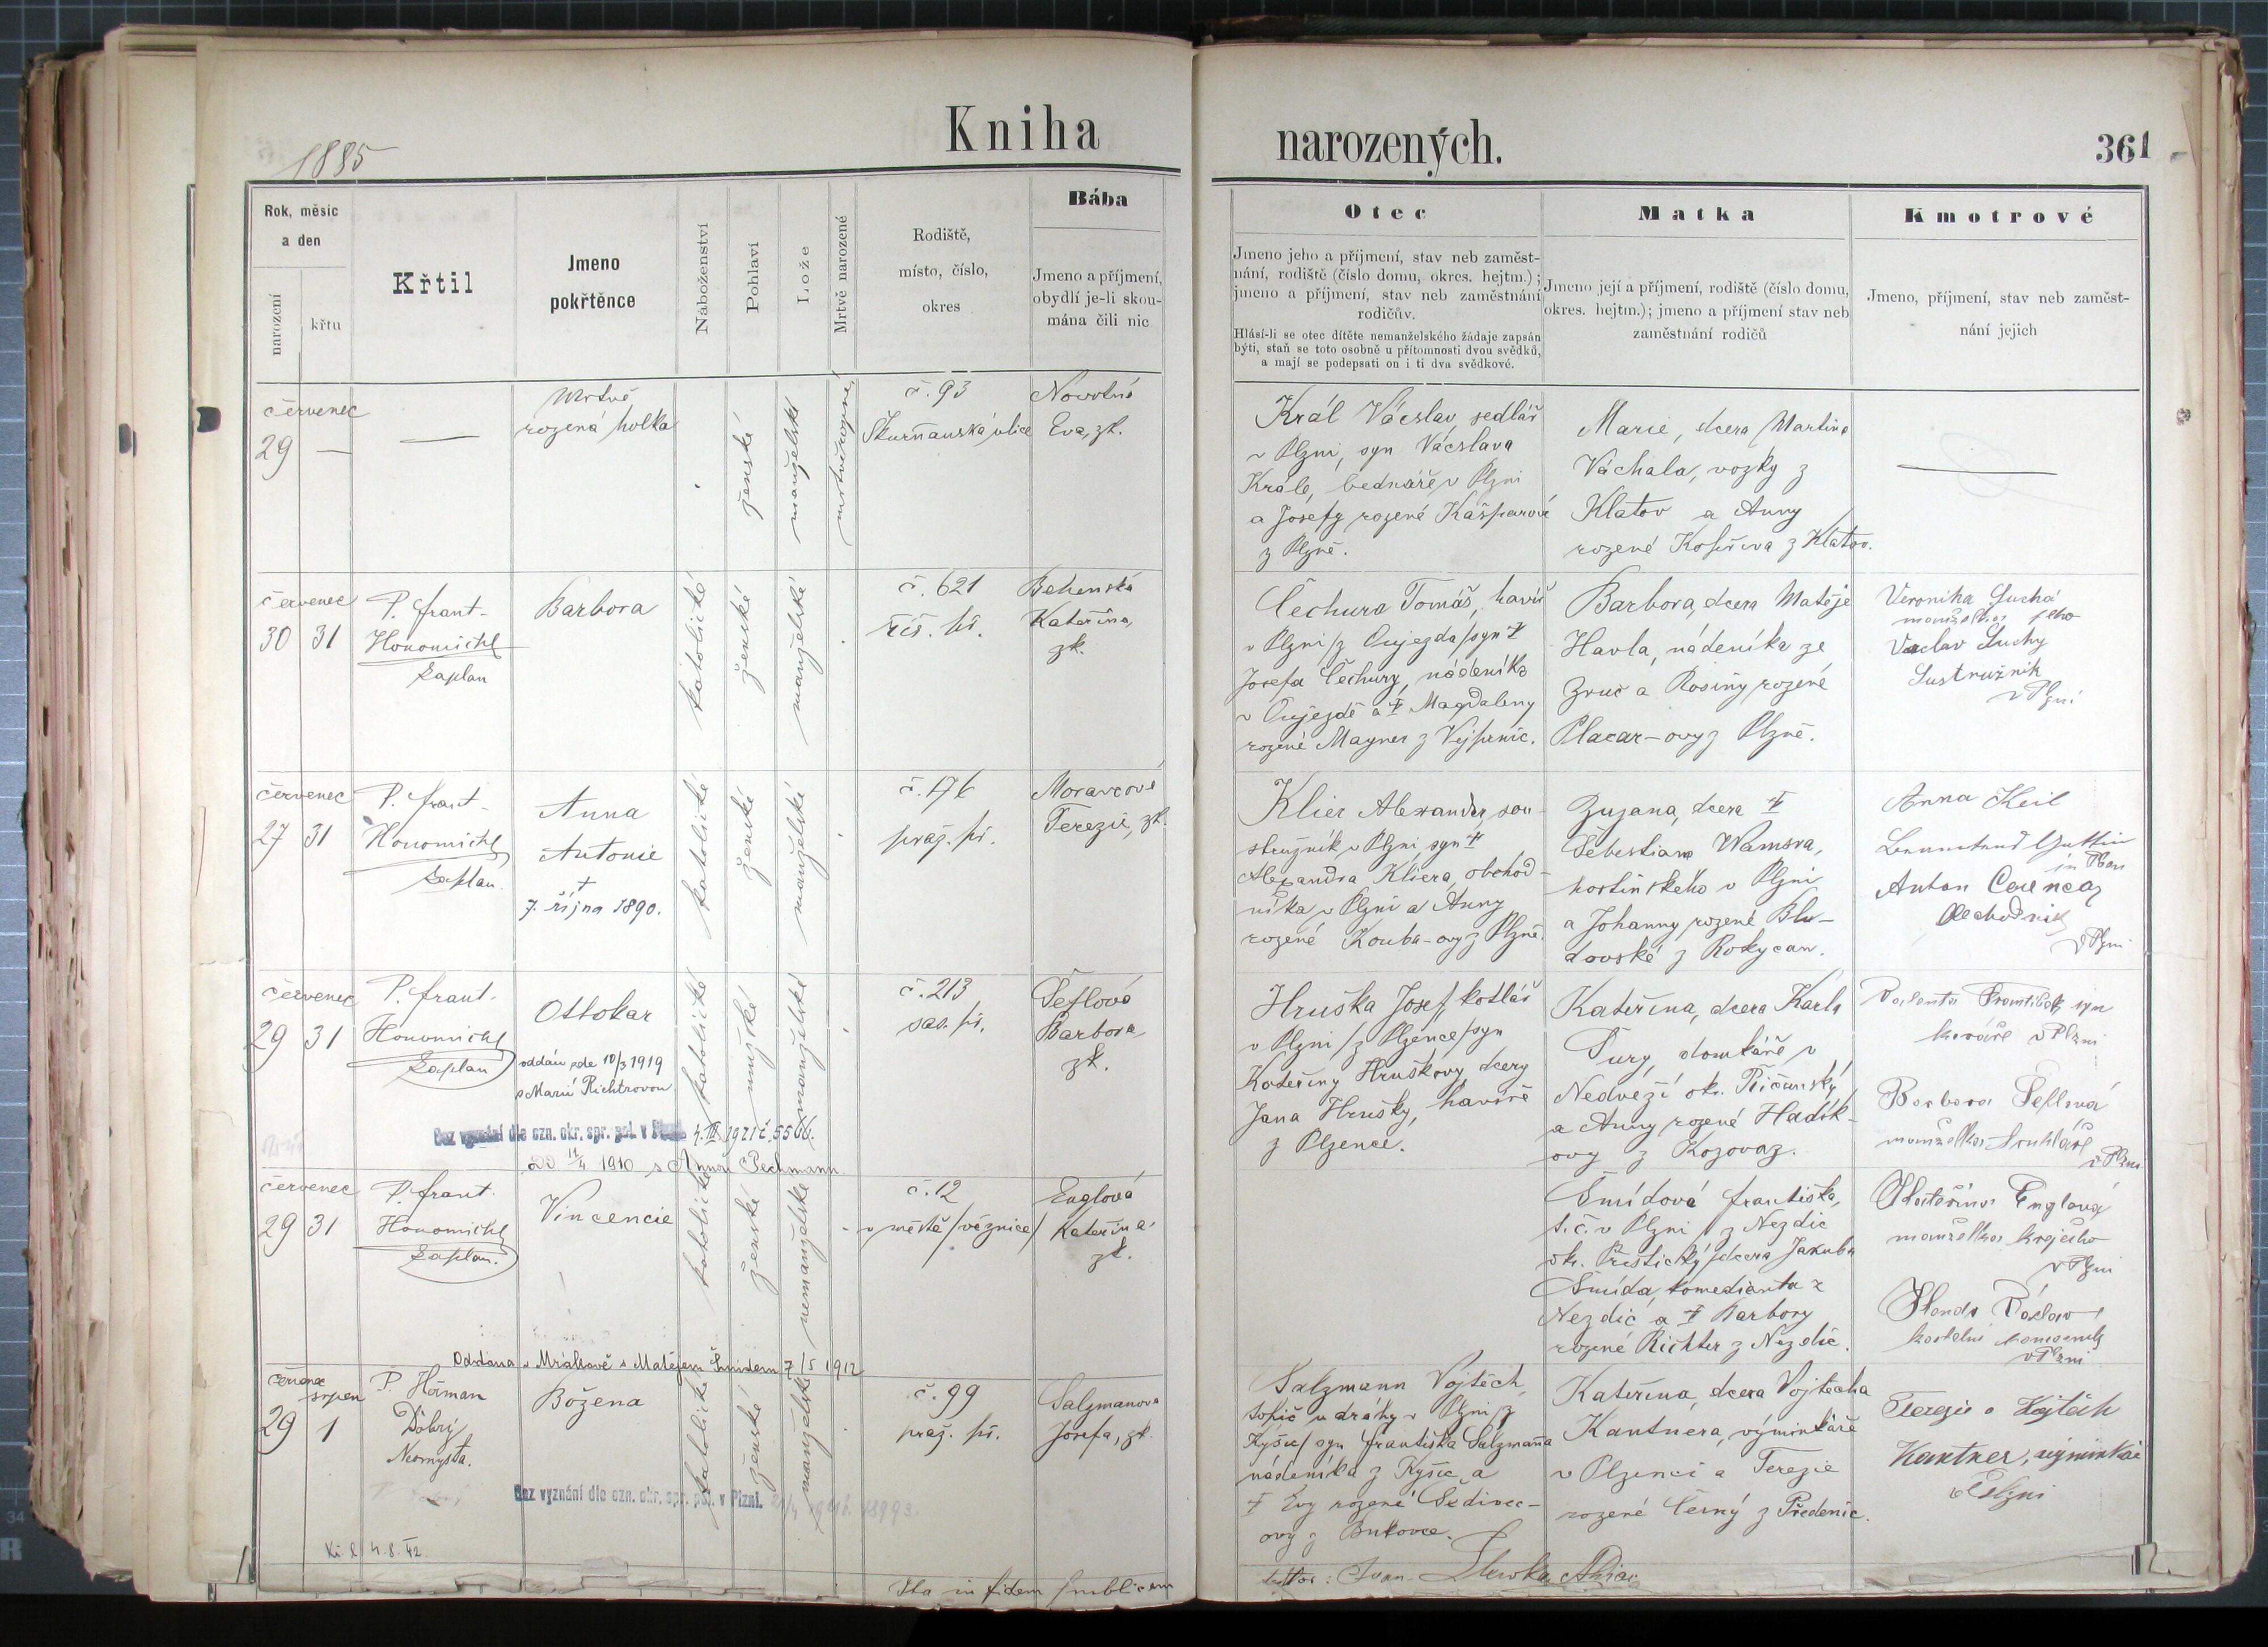 1885
Kniha
narozených.
361
Rok, měsíc
a den
narození
křtu
Křtil
Jmeno
pokřtěnce
Náboženství
Pohlaví
Lože
Mrtvě narozené
Rodiště,
místo, číslo,
okres
Bába
Jmeno a příjmení,
obydlí je-li skou-
mána čili nic
Otec
Jmeno jeho a příjmení, stav neb zaměst-
nání, rodiště (číslo domu, okres. hejtm.);
jmeno a příjmení, stav neb zaměstnání
rodičův.
Hlásí-li se otec dítěte nemanželského žádaje zapsán
býti, staň se toto osobně u přítomnosti dvou svědků,
a mají se podepsati on i ti dva svědkové.
Matka
Jmeno její a příjmení, rodiště (číslo domu,
okres. hejtm.); jmeno a příjmení stav neb
zaměstnání rodičů
Kmotrové
Jmeno, příjmení, stav neb zaměst-
nání jejich
červenec
29 —
—
Mrtvě
rozená holka
ženské
manželské
mrtvěrozené
č. 93
Škurňanská ulice
Novotná
Eva, zk.
Král Václav, sedlář
v Plzni, syn Václava
Krále, bednáře v Plzni
a Josefy rozené Kašparové
z Plzně.
Marie, dcera Martina
Váchala, vozky z
Klatov a Anny
rozené Kopřiva z Klatov.
červenec
30 31
P. Frant.
Honomichl
kaplan
Barbora
katolické
ženské
manželské
č. 621
říš. př.
Kateřina,
zk.
Čechura Tomáš, havíř
v Plzni /z Oujezda/ syn †
Josefa Čechury, nádeníka
v Oujezdě a † Magdaleny
rozené Mayner z Vejprnic.
Barbora, dcera Matěje
Havla, nádeníka ze
Zruč a Rosiny rozené
Placar-ovy z Plzně.
Veronika Suchá
manželka jeho
Vaclav Suchy
Sustružnik
v Plzni
červenec
27 31
P. Frant.
Honomichl
kaplan.
Anna
Antonie
†
7. října 1890.
katolické
ženské
manželské
č. 176
praž. př.
Moravcová
Terezie, zk.
Klier Alexander, sou-
stružník v Plzni, syn †
Alexandra Kliera, obchod-
níka v Plzni a Anny
rozené Kouba-ovy z Plzně.
Zuzana, dcera †
Šebestiana Wamsra,
hostinského v Plzni
a Johanny rozené Blu-
dovské z Rokycan.
Anna Keil
Anton
v Plzni
červenec
29 31
P. Frant.
Honomichl
kaplan
Ottokar
oddán dle 10/3 1919
s Marií Richtrovou
Bez vyznání dle ozn. okr. spr. pol. v Plzni
1921 č. 5566.
1910 s Annou Pechmann
katolické
mužské
manželské
č. 213
sas. př.
Šeflová
Barbora,
zk.
Hruška Josef, kotlář
v Plzni /z Plzence/ syn
Kateřiny Hruškovy, dcery
Jana Hrušky, havíře
z Plzence.
Kateřina, dcera Karla
Tury, domkáře v
Nedvězí ok. Říčanský
a Anny rozené Hadšk-
ovy z Kozovaz.
Valenta František syn
kováře v Plzni
Barbora Šeflová
manželka truhláře
v Plzni
červenec
29 31
P. Frant.
Honomichl
kaplan.
Vincencie
Oddána v Mrákově s Matějem Šmidem 7/5 1912
katolické
ženské
nemanželské
č. 12
v městě /věznice/
Englová
Kateřina,
zk.
Šmídová Františka,
t. č. v Plzni /z Nezdic
ok. Přeštický/ dcera Jakuba
Šmída, komedianta z
Nezdic a † Barbory
rozené Richter z Nezdic.
Kateřina Englová
manželka krejčího
v Plzni
Václav
kostelní
v Plzni
červenec
srpen
29 1
P. Heřman
Dobrý
Neomysta.
Božena
Bez vyznání dle ozn. okr. spr. pol. v Plzni.
katolické
ženské
manželské
č. 99
praž. př.
Salzmanova
Josefa, zk.
Salzmann Vojtěch,
topič u dráhy v Plzni /z
Kyšic/ syn Františka Salzmanna
nádeníka z Kyšic a
† Evy rozené Šedivec-
ovy z Bukovce.
Kateřina, dcera Vojtěcha
Kantnera, výminkáře
v Plzenci a Terezie
rozené Černý z Předenic.
Terezie a Vojtěch
Kantner, výminkář
v Plzni
4.8.42.
Ita in fidem publicam